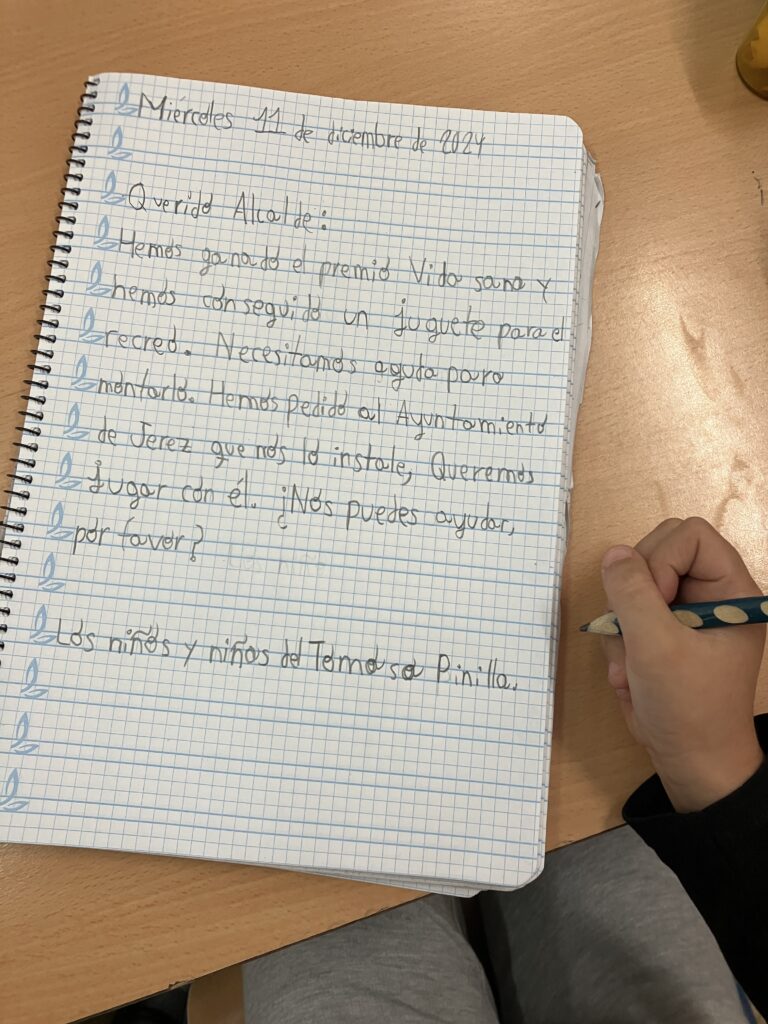 Miércoles 11 de diciembre de 2024
Querido Alcalde:
Hemos ganado el premio Vida sana y
hemos conseguido un juguete para el
recreo. Necesitamos ayuda para
montarlo. Hemos pedido al Ayuntamiento
de Jerez que nos lo instale, Queremos
jugar con él. ¿Nos puedes ayudar,
por favor?
Los niños y niñas del Tomasa Pinilla.